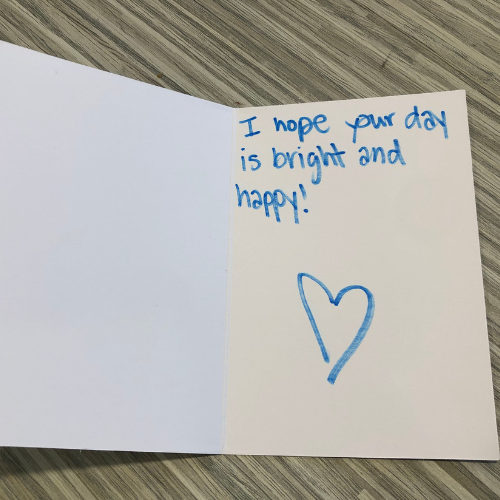 I hope your day
is bright and
happy!